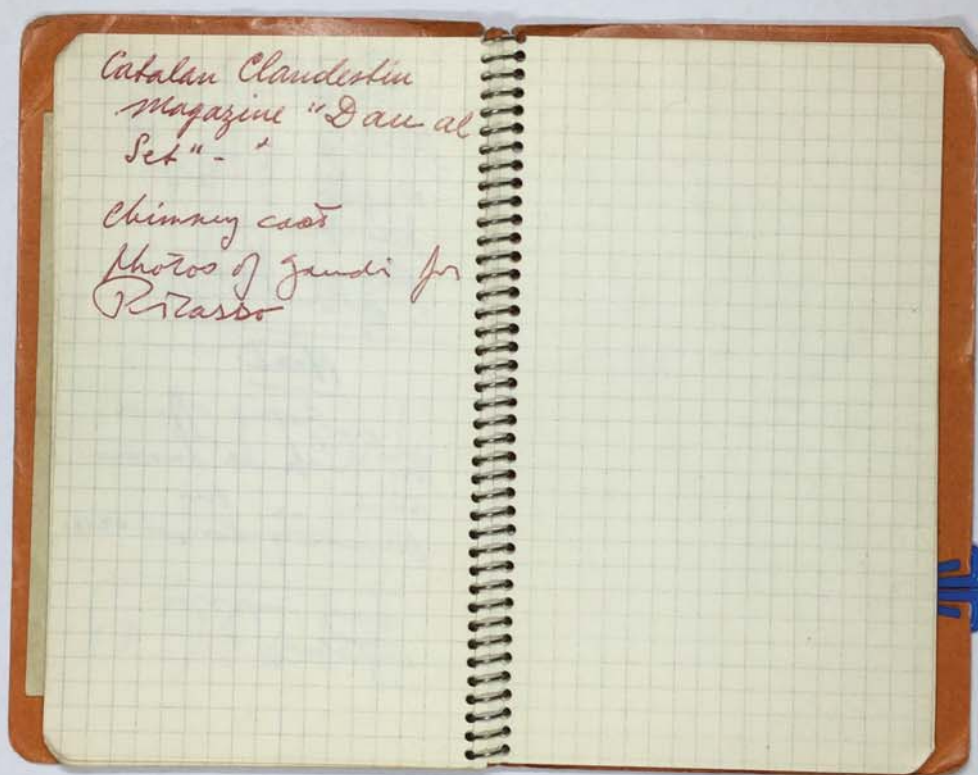 Catalan Clandestin
Magazine "Dau al
Set" -
Chimney
Photos of Gaudi for
Picasso